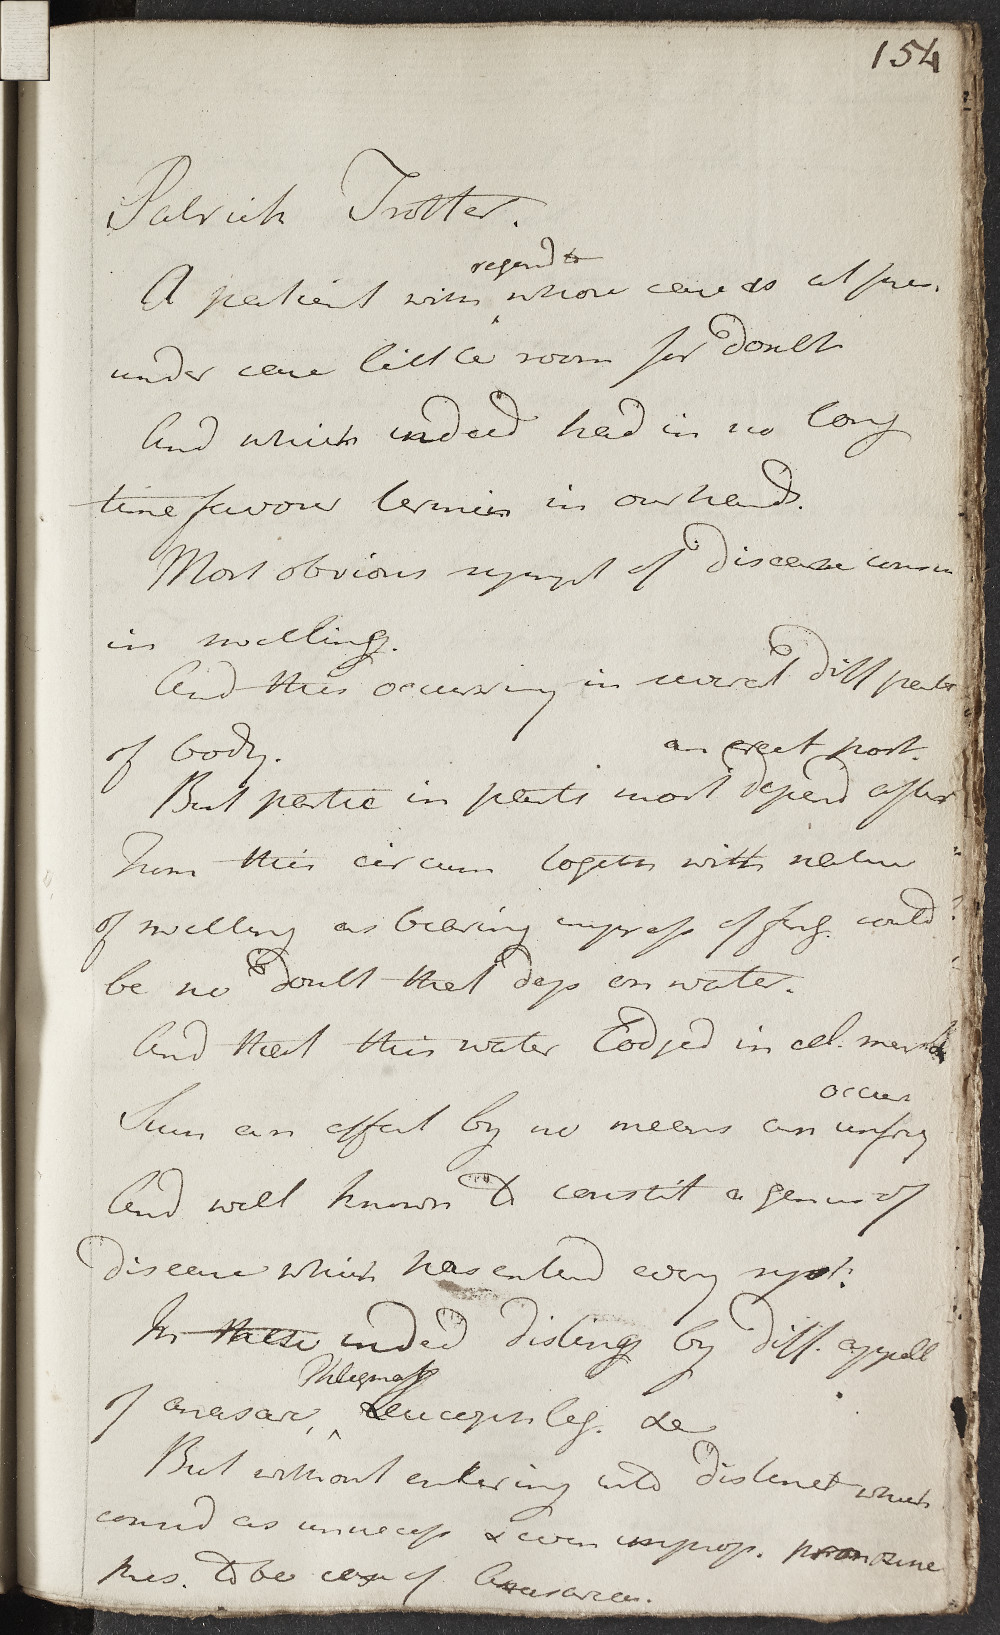 154
Patrick Trotter.
regard to
A patient with whose case as at pres.
under care little room for doubt
And which indeed had in no long
time favour termin in our hands.
Most obvious sympt of disease consis
in swelling.
And this occurring in several diff parts
of body.
an erect post.
But partic in parts most depend after
From this circum togeth with nature
of swelling as bearing impress of fing. could
be no doubt that deps on water.
And that this water lodged in cel. memb
occur
Such an effect by no means an unfreq
And well known to constit a genus of
disease which has entered every syst.
In these indeed disting by diff. appell
of anasarc, Leucophleg. &c
Phlegmass
But without entering into distinct which
consid as unnecess & even improp. pronounce
pres. to be case of Anasarca.